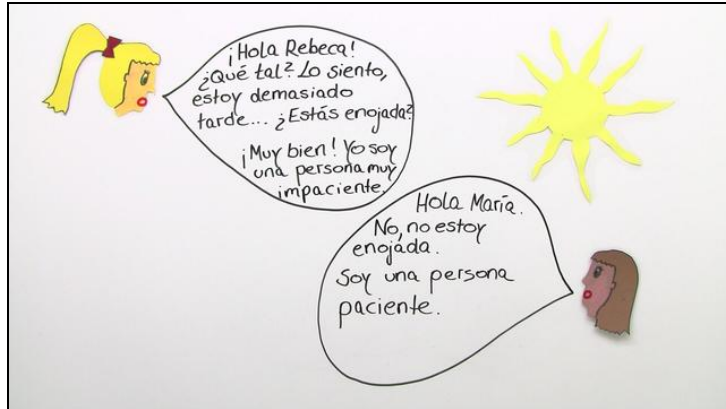 ¡Hola Rebeca!
¿Qué tal? Lo siento,
estoy demasiado
tarde... ¿Estás enojada?
¡Muy bien! Yo soy
una persona muy
impaciente.
Hola María.
No, no estoy
enojada.
Soy una persona
paciente.